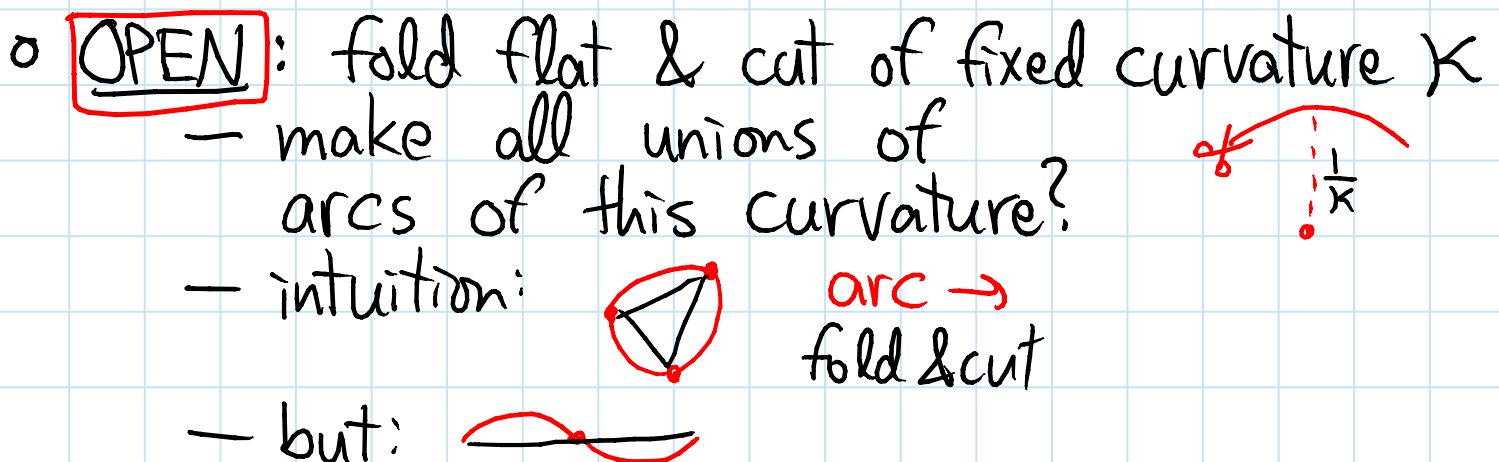 OPEN: fold flat & cut of fixed curvature K
— make all unions of
arcs of this curvature?
1/K
— intuition: arc →
fold & cut
— but: